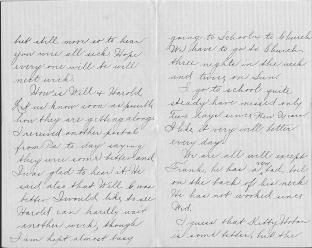 but still more so to hear
you were all sick. Hope
every one will be well
next week.
How is Will & Harold,
let us know soon as possible
how they are getting along
I received another postal
from Pa to day saying
they were some better and
I was glad to hear it. He
said also that Will was
better I would like to see
Harold can hardly wait
another week, though
I am kept almost busy
going to School & to Church
We have to go to Church
three nights in the week
and twice on Sun.
I go to school quite
steady have missed only
two days since New Years
I like it very well better
every day.
We are all well except
Frank, he has a bad boil
on the back of his neck
He has not worked since
Wed.
I guess that Kitty
is some better, but the